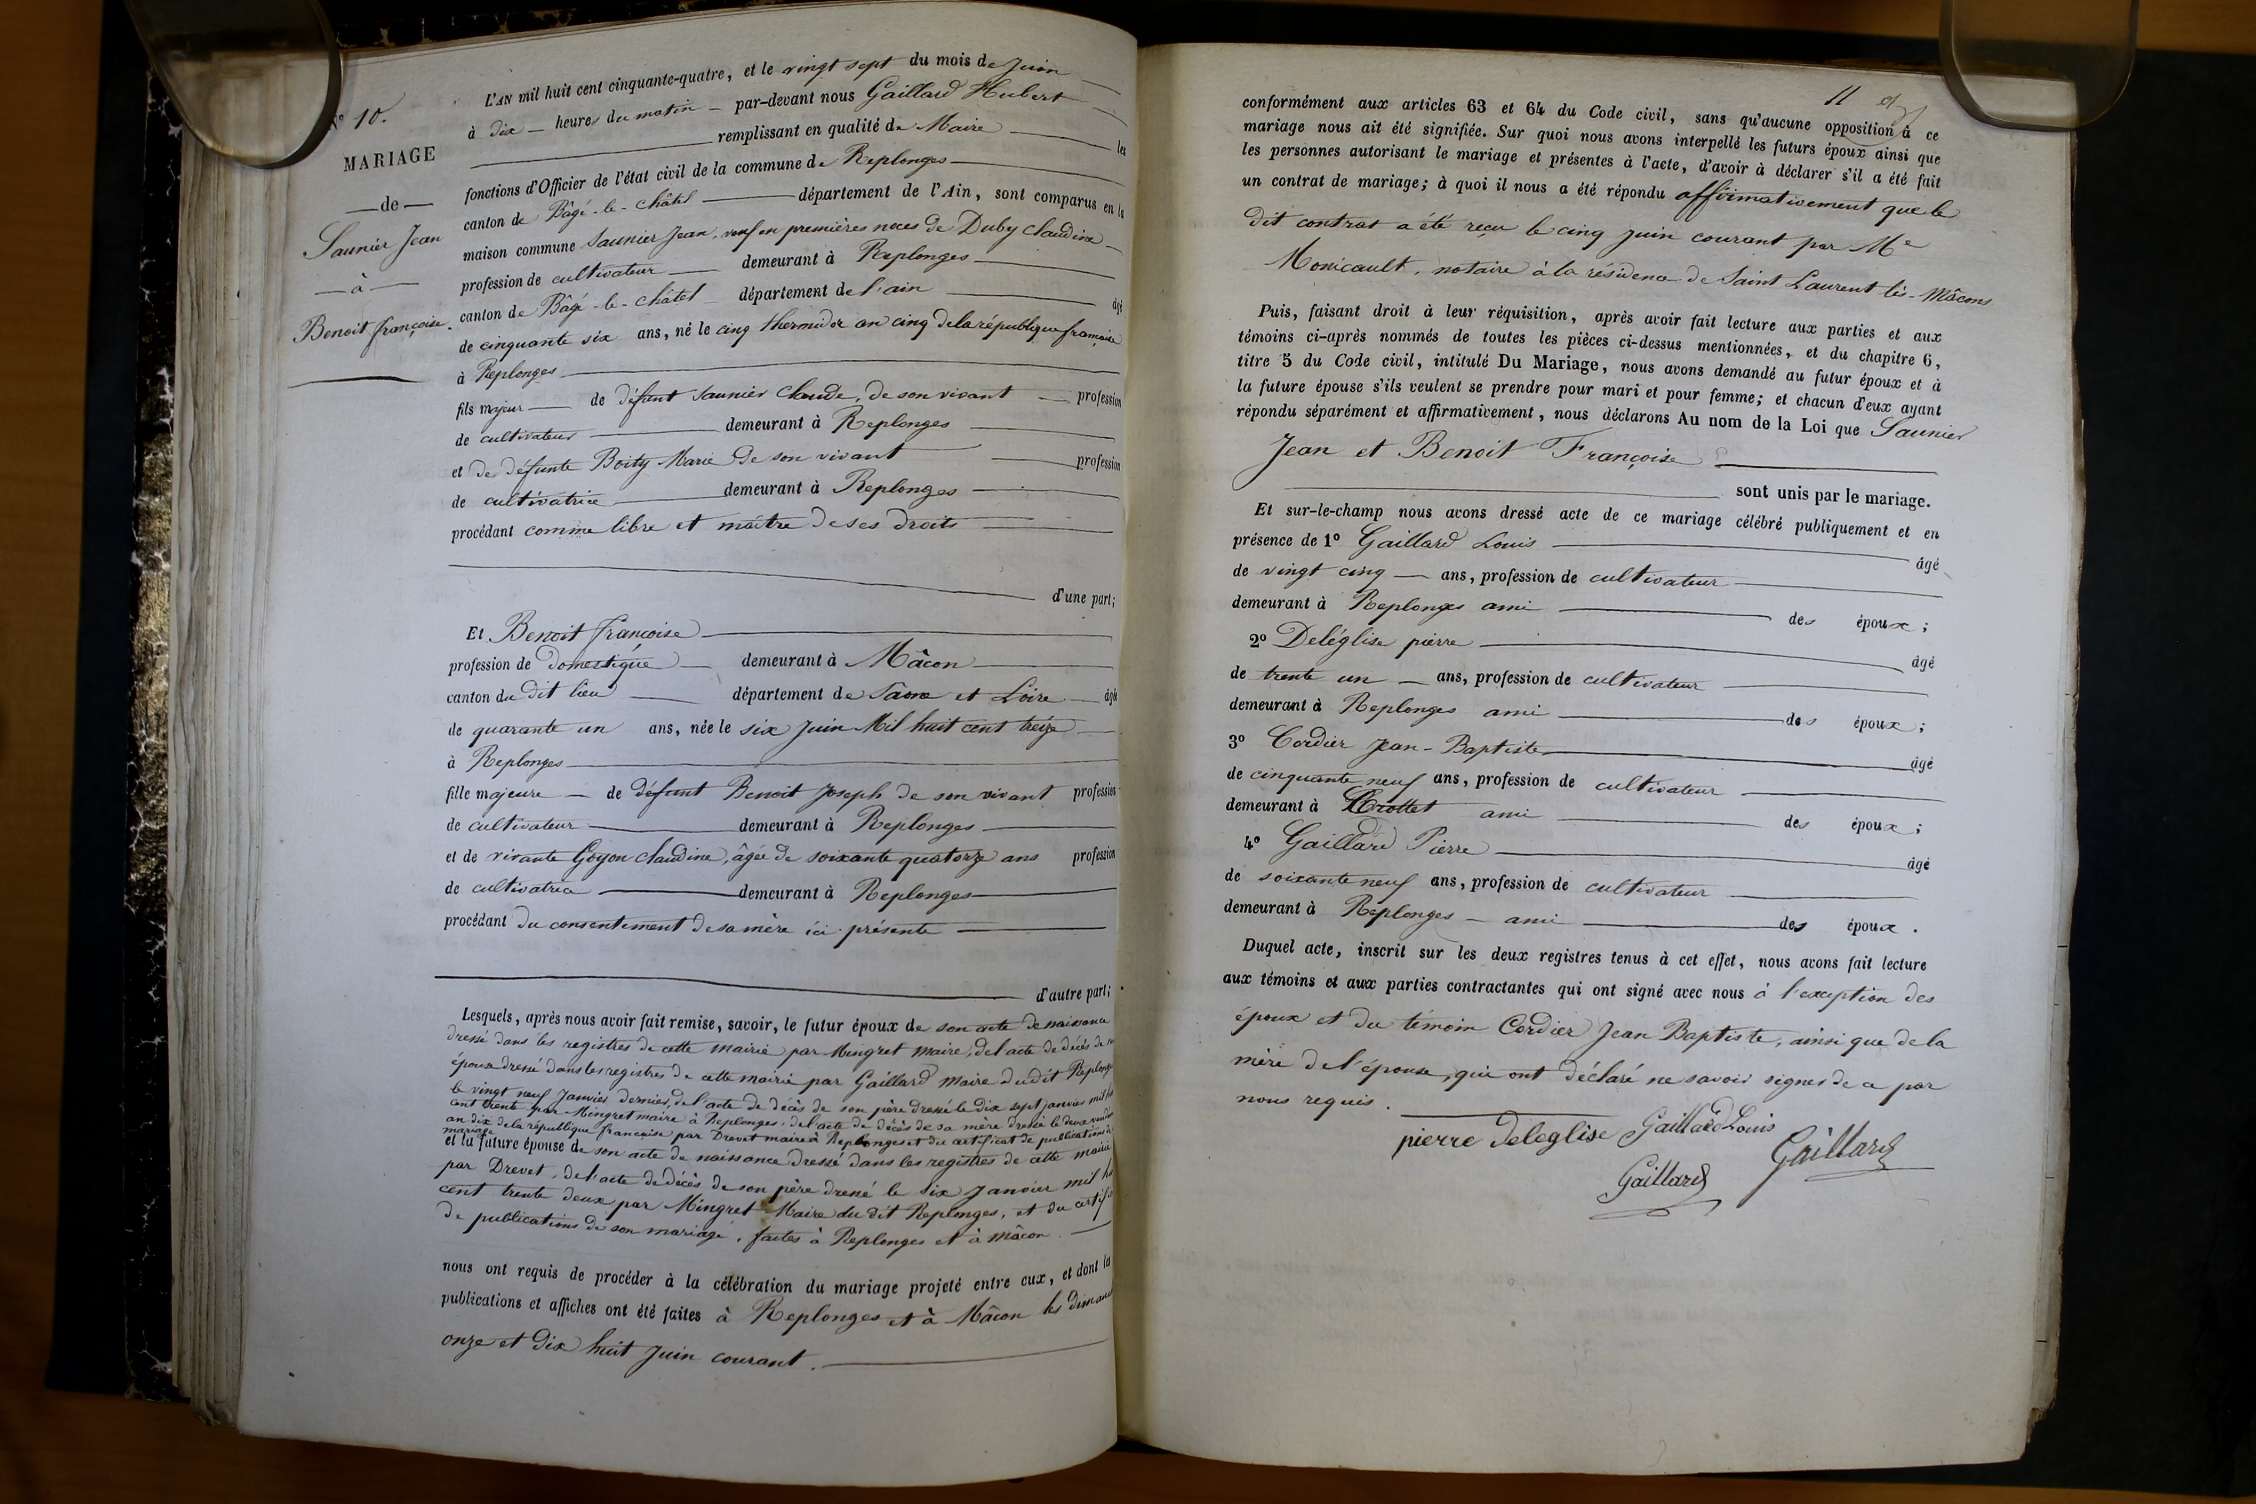 N° 10.
MARIAGE
de
Saunier Jean
à
Benoit françoise.
L'AN mil huit cent cinquante-quatre, et le vingt sept du mois de Juin
à dix heures du matin par-devant nous Gaillard Hubert
remplissant en qualité de Maire les
fonctions d'Officier de l'état civil de la commune de Replonges
canton de Bâgé-le-Châtel département de l'Ain, sont comparus en la
maison commune Saunier Jean, veuf en premières noces de Duby Claudine
profession de cultivateur demeurant à Replonges
canton de Bâgé-le-Châtel département de l'ain âgé
de cinquante six ans, né le cinq thermidor an cinq de la république française
à Replonges
fils majeur de défunt Saunier Claude, de son vivant profession
de cultivateur demeurant à Replonges
et de défunte Boity Marie de son vivant profession
de cultivatrice demeurant à Replonges
procédant comme libre et maître de ses droits
d'une part;
Et Benoit françoise
profession de domestique demeurant à Mâcon
canton du dit lieu département de Saone et Loire âgée
de quarante un ans, née le six Juin Mil huit cent treize
à Replonges
fille majeure de défunt Benoit Joseph de son vivant profession
de cultivateur demeurant à Replonges
et de vivante Goyon Claudine, âgée de soixante quatorze ans profession
de cultivatrice demeurant à Replonges
procédant du consentement de sa mère ici présente
d'autre part;
Lesquels, après nous avoir fait remise, savoir, le futur époux de son acte de naissance
dressé dans les registres de cette mairie par Mingret maire, de l'acte de décès de son
épouse dressé dans les registres de cette mairie par Gaillard maire dudit Replonges
le vingt neuf Janvier dernier, de l'acte de décès de son père dressé le dix sept janvier mil
cent trente par Mingret maire à Replonges, de l'acte de décès de sa mère dressé le deux
an dix de la république française par Drevet maire à Replonges et du certificat de publications de
mariage
et la future épouse de son acte de naissance dressé dans les registres de cette mairie
par Drevet, de l'acte de décès de son père dressé le six Janvier mil
cent trente deux par Mingret Maire du dit Replonges, et du
de publications de son mariage, faites à Replonges et à Mâcon.
nous ont requis de procéder à la célébration du mariage projeté entre eux, et dont les
publications et affiches ont été faites à Replonges et à Mâcon les
onze et dix huit Juin courant.
11
conformément aux articles 63 et 64 du Code civil, sans qu'aucune opposition à ce
mariage nous ait été signifiée. Sur quoi nous avons interpellé les futurs époux ainsi que
les personnes autorisant le mariage et présentes à l'acte, d'avoir à déclarer s'il a été fait
un contrat de mariage; à quoi il nous a été répondu affirmativement que le
dit contrat a été reçu le cinq Juin courant par Me
Monicault, notaire à la résidence de Saint Laurent lès-Mâcons
Puis, faisant droit à leur réquisition, après avoir fait lecture aux parties et aux
témoins ci-après nommés de toutes les pièces ci-dessus mentionnées, et du chapitre 6,
titre 5 du Code civil, intitulé Du Mariage, nous avons demandé au futur époux et à
la future épouse s'ils veulent se prendre pour mari et pour femme; et chacun d'eux ayant
répondu séparément et affirmativement, nous déclarons Au nom de la Loi que Saunier
Jean et Benoit Françoise
sont unis par le mariage.
Et sur-le-champ nous avons dressé acte de ce mariage célébré publiquement et en
présence de 1° Gaillard Louis âgé
de vingt cinq ans, profession de cultivateur
demeurant à Replonges ami des époux;
2° Deléglise pierre âgé
de trente un ans, profession de cultivateur
demeurant à Replonges ami des époux;
3° Cordier Jean-Baptiste âgé
de cinquante neuf ans, profession de cultivateur
demeurant à Crottet ami des époux;
4° Gaillard Pierre âgé
de soixante neuf ans, profession de cultivateur
demeurant à Replonges ami des époux.
Duquel acte, inscrit sur les deux registres tenus à cet effet, nous avons fait lecture
aux témoins et aux parties contractantes qui ont signé avec nous à l'exception des
époux et du témoin Cordier Jean Baptiste, ainsi que de la
mère de l'épouse, qui ont déclaré ne savoir signer de ce par
nous requis.
pierre deleglise Gaillard Louis
Gaillard Gaillard